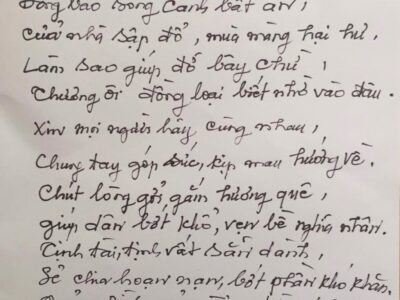 Đồng bào sống cảnh bất an,
cửa nhà sập đổ, mùa màng hại hư,
Làm sao giúp đỡ bây chừ,
Thương ôi đồng loại biết nhờ vào đâu.
Xin mọi người hãy cùng nhau,
Chung tay góp sức, kịp mau hướng về.
Chút lòng gởi gắm hương quê,
giúp dân bớt khổ, vẹn bề nghĩa nhân.
Tịnh tài, tịnh vật sẵn dành,
Sẻ chia hoạn nạn, bớt phần khó khăn.